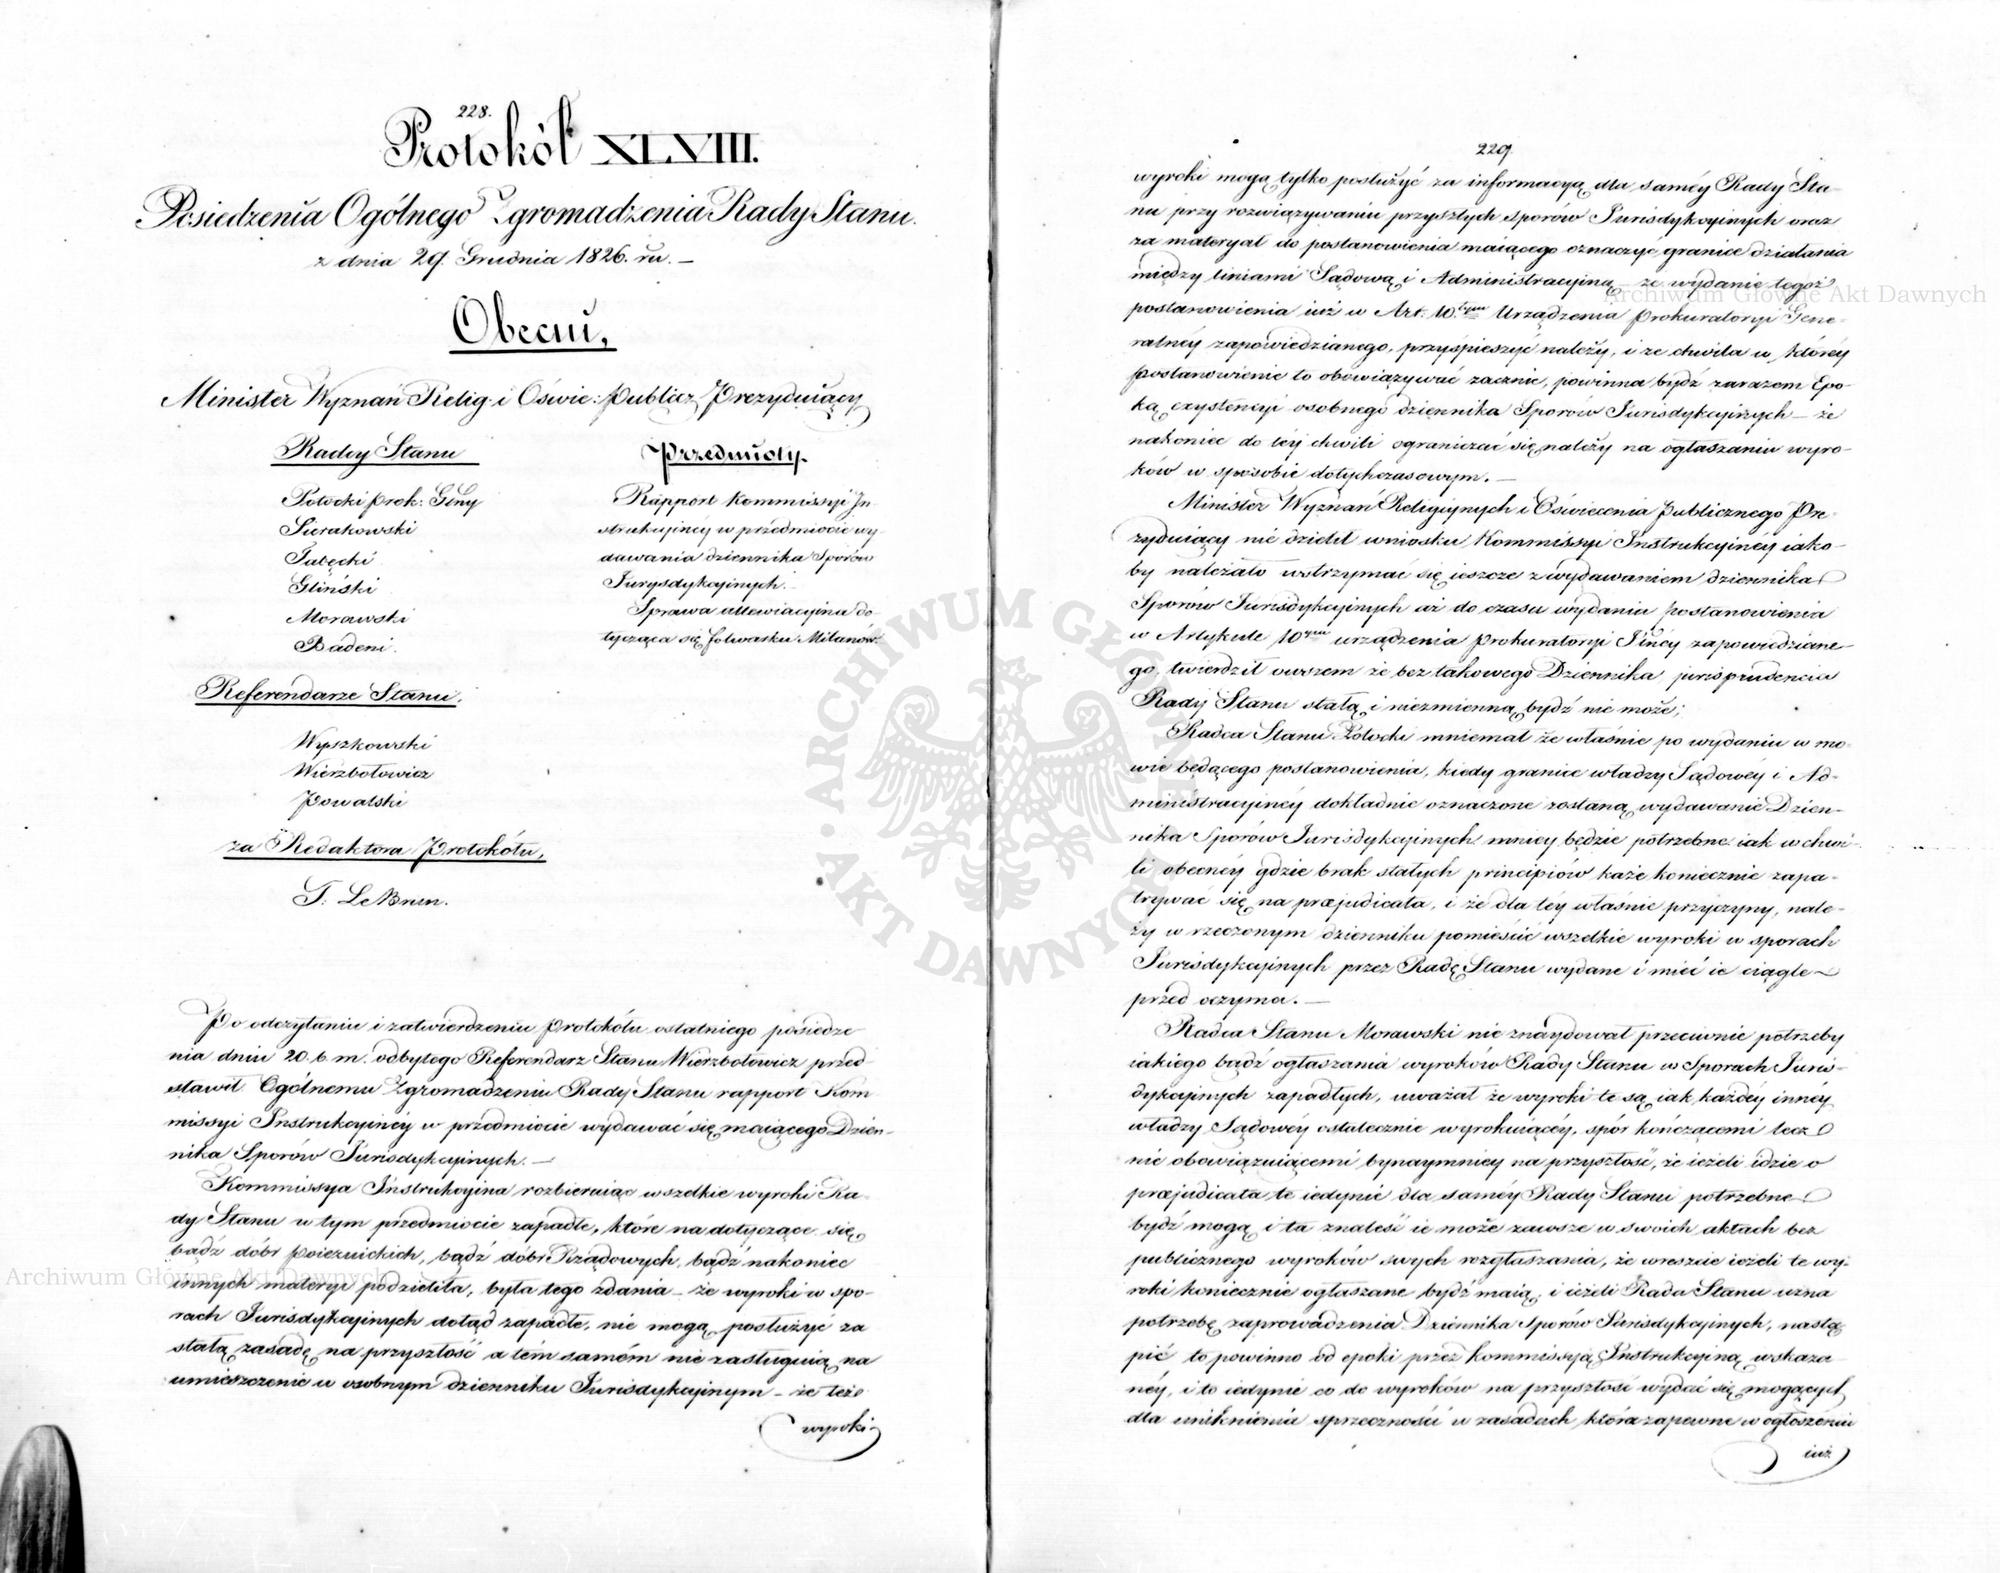 228.
Protokół XLVIII.
Posiedzenia Ogólnego Zgromadzenia Rady Stanu.
z dnia 29. Grudnia 1826. ru. —
Obecni,
Minister Wyznań Relig. i Oświe: Publicz. Prezyduiący
Radcy Stanu
Potocki Prok: Gīny
Sierakowski
Gliński
Morawski
Badeni.
Referendarze Stanu.
Wyszkowski
Wierzbołowicz
Powalski
za Redaktora Protokółu,
T. Le Brun.
Przedmioty.
Rapport Kommissyi In-
strukcyinéy w przedmiocie wy-
dawania dziennika Sporów
Jurysdykcyinych.
Sprawa allewiacyina do-
tycząca się folwarku Milanów.
Po odczytaniu i zatwierdzeniu Protokółu ostatniego posiedze
nia dniu 20. b. m. odbytego Referendarz Stanu Wierzbołowicz przed
stawił Ogólnemu Zgromadzeniu Rady Stanu rapport Kom
missyi Instrukcyinéy w przedmiocie wydawać się maiącego Dzien-
nika Sporów Jurisdykcyinych. —
Kommissya Instrukcyina rozbieraiąc wszelkie wyroki Ra-
dy Stanu w tym przedmiocie zapadłe, które na dotyczące się
bądź dóbr poiezuickich, bądź dóbr Rządowych, bądź nakoniec
innych materyi podzieliła, była tego zdania — że wyroki w spo-
rach Jurisdykcyinych dotąd zapadłe, nie mogą posłużyć za
stałą zasadę na przyszłość a tém samém nie zasługuią na
umieszczenie w osobnym dzienniku Jurisdykcyinym — że też
wyroki
229
wyroki mogą tylko posłużyć za informacyą dla saméy Rady Sta-
nu przy rozwiązywaniu przyszłych sporów Jurisdykcyinych oraz
za materyał do postanowienia maiącego oznaczyć granice działania
między liniami Sądową i Administracyiną — że wydanie tegoż
postanowienia iuż w Art. 10.tym Urządzenia Prokuratoryi Gene-
ralnéy zapowiedzianego, przyśpieszyć należy, i że chwila w któréy
postanowienie to obowiązywać zacznie, powinna bydź zarazem Epo-
ką exystencyi osobnego dziennika Sporów Jurisdykcyinych — że
nakoniec do téy chwili ograniczać się należy na ogłaszaniu wyro-
ków w sposobie dotychczasowym. —
Minister Wyznań Religiynych i Oświecenia Publicznego Pre-
zyduiący nie dzielił wniosku Kommissyi Instrukcyinéy iako-
by należało wstrzymać się ieszcze z wydawaniem dziennika
Sporów Jurisdykcyinych aż do czasu wydania postanowienia
w Artykule 10tym urządzenia Prokuratoryi Ilnéy zapowiedziane-
go, twierdził owszem że bez takowego Dziennika jurisprudencia
Rady Stanu stałą i niezmienną bydź nie może;
Radca Stanu Potocki mniemał że właśnie po wydaniu w mo-
wie będącego postanowienia, kiedy granice władzy Sądowéy i Ad-
ministracyinéy dokładnie oznaczone zostaną, wydawanie Dzien-
nika Sporów Jurisdykcyinych mniey będzie potrzebne iak w chwi-
li obecnéy gdzie brak stałych principiów każe koniecznie zapa-
trywać się na præjudicata, i że dla téy właśnie przyczyny, nale-
ży w rzeczonym dzienniku pomieścić wszelkie wyroki w sporach
Jurisdykcyinych przez Radę Stanu wydane i mieć ie ciągle
przed oczyma. —
Radca Stanu Morawski nie znaydował przeciwnie potrzeby
iakiego bądź ogłaszania wyroków Rady Stanu w Sporach Juris-
dykcyinych zapadłych, uważał że wyroki te są iak każdéy innéy
władzy Sądowéy ostatecznie wyrokuiącéy, spór kończącemi lecz
nie obowiązuiącemi bynaymniey na przyszłość, że ieżeli idzie o
præjudicata te iedynie dla saméy Rady Stanu potrzebne
bydź mogą i ta znaleść ie może zawsze w swoich aktach bez
publicznego wyroków swych rozgłaszania, że wreszcie ieżeli te wy-
roki koniecznie ogłaszane bydź maią, i ieżeli Rada Stanu uzna
potrzebę zaprowadzenia Dziennika Sporów Jurisdykcyinych, nastą-
pić to powinno od epoki przez Kommissyą Instrukcyiną wskaza-
néy, i to iedynie co do wyroków na przyszłość wydać się mogących
dla uniknienia sprzeczności w zasadach, która zapewne w ogłoszeniu
iuż
Archiwum Główne Akt Dawnych
Archiwum Główne Akt Dawnych
ARCHIWUM GŁÓWNE AKT DAWNYCH